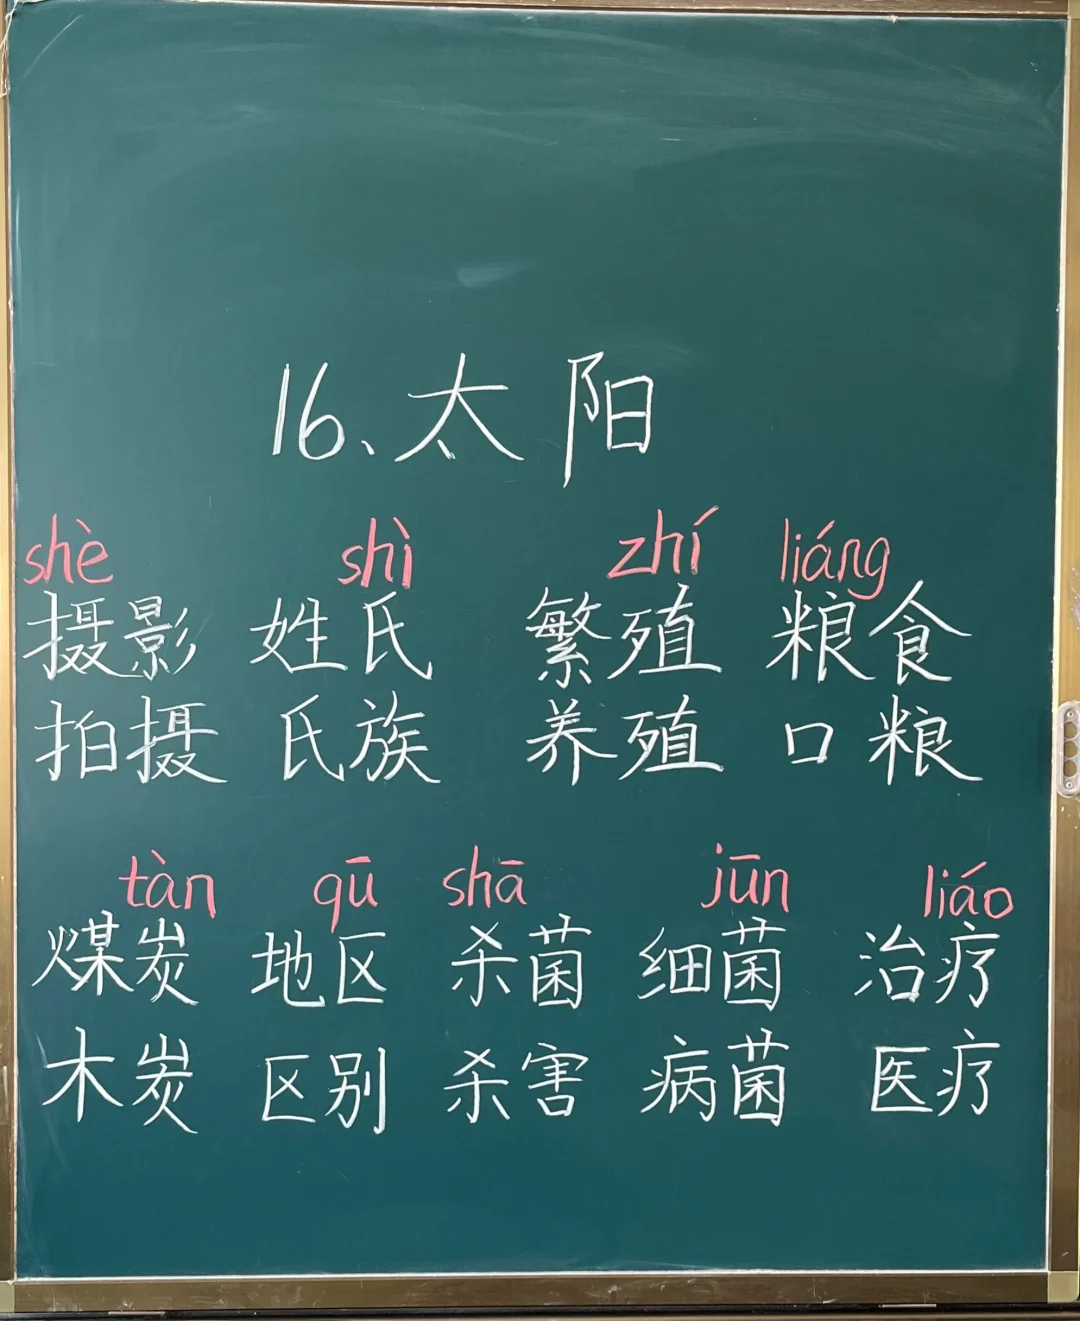 16、太阳
shè shì zhí liáng
摄影 姓氏 繁殖 粮食
拍摄 氏族 养殖 口粮
tàn qū shā jūn liáo
煤炭 地区 杀菌 细菌 治疗
木炭 区别 杀害 病菌 医疗